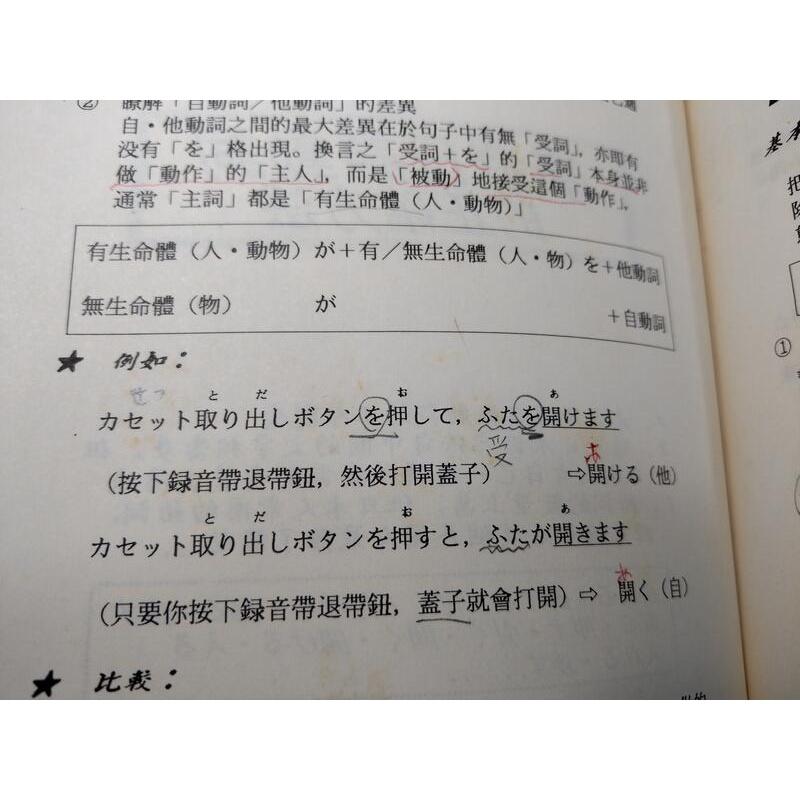 ② 瞭解「自動詞／他動詞」的差異
自・他動詞之間的最大差異在於句子中有無「受詞」，亦即有
没有「を」格出現。換言之「受詞＋を」的「受詞」本身並非
做「動作」的「主人」，而是「被動」地接受這個「動作」，
通常「主詞」都是「有生命體（人・動物）」
有生命體（人・動物）が＋有／無生命體（人・物）を＋他動詞
無生命體（物） が ＋自動詞
★ 例如：
と だ お あ
カセット取り出しボタンを押して，ふたを開けます
受 あ
(按下録音帶退帶鈕，然後打開蓋子) ⇨開ける（他）
と だ お あ
カセット取り出しボタンを押すと，ふたが開きます
あ
(只要你按下録音帶退帶鈕，蓋子就會打開) ⇨ 開く（自）
★ 比較：
基本
把
①